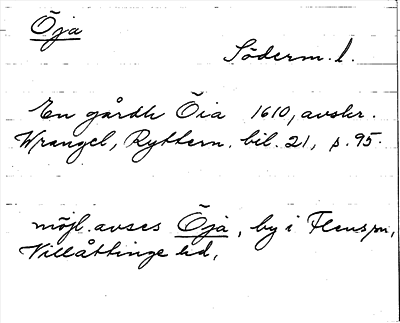 Öja
Söderm. l.
En gårdh Öia 1610, avskr.
Wrangel, Ryttern. bil. 21, s. 95.
möjl. avses Öja, by i Flens sn,
Villåttinge hd,